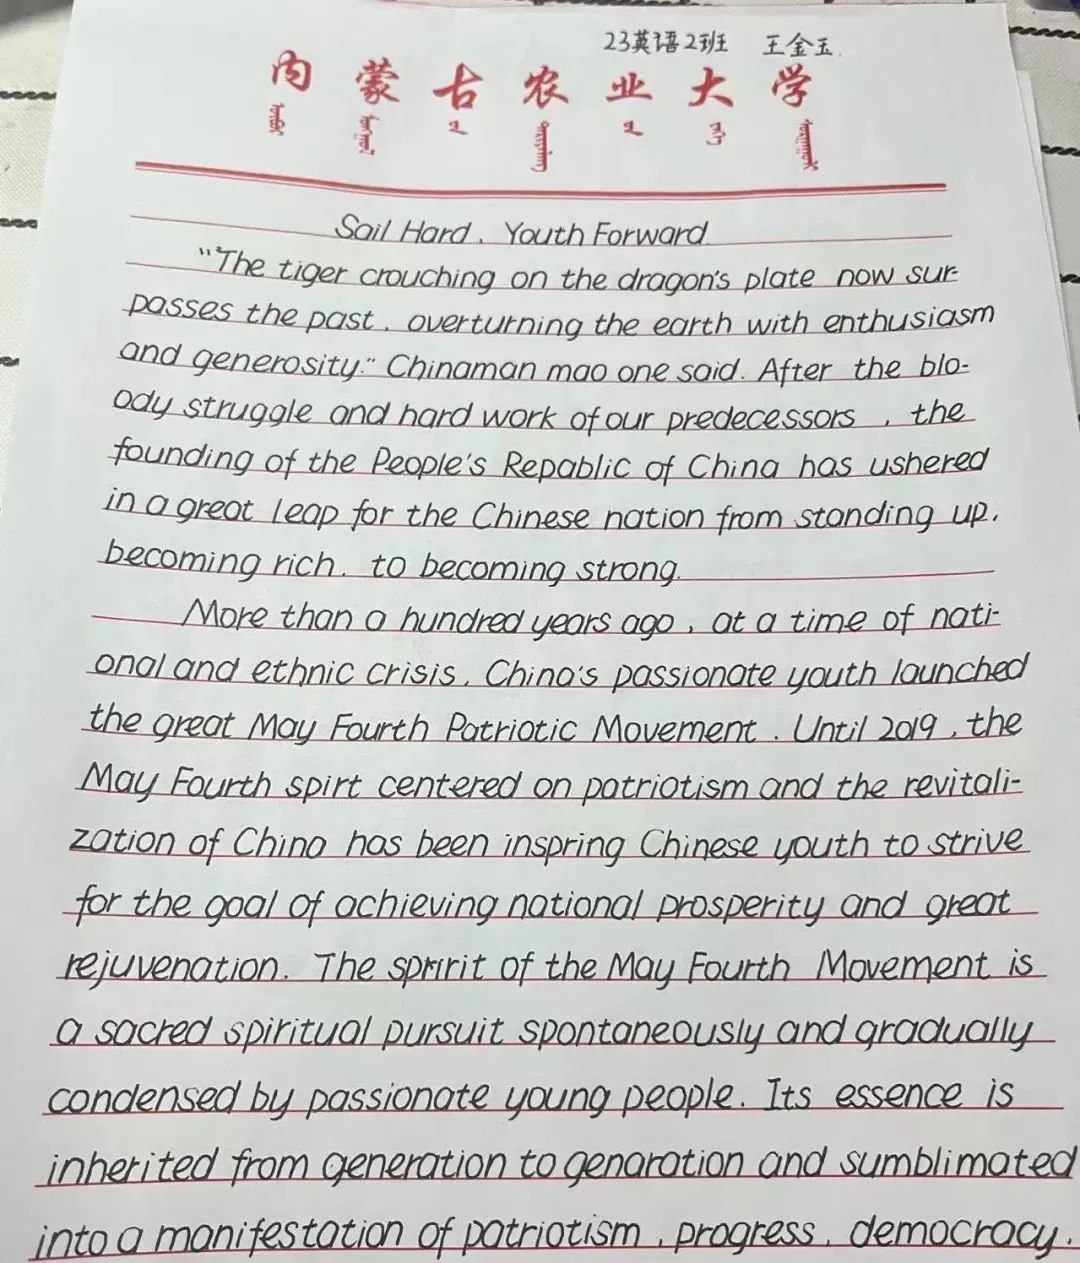 23英语2班 王金玉.
内蒙古农业大学
Sail Hard, Youth Forward
"The tiger crouching on the dragon's plate now sur-
passes the past, overturning the earth with enthusiasm
and generosity." Chinaman mao one said. After the blo-
ody struggle and hard work of our predecessors, the
founding of the People's Repablic of China has ushered
in a great leap for the Chinese nation from standing up,
becoming rich, to becoming strong.
More than a hundred years ago, at a time of nati-
onal and ethnic crisis, China's passionate youth launched
the great May Fourth Patriotic Movement. Until 2019, the
May Fourth spirt centered on patriotism and the revitali-
zation of China has been inspring Chinese youth to strive
for the goal of achieving national prosperity and great
rejuvenation. The spririt of the May Fourth Movement is
a sacred spiritual pursuit spontaneously and gradually
condensed by passionate young people. Its essence is
inherited from generation to genaration and sumblimated
into a manifestation of patriotism, progress, democracy,